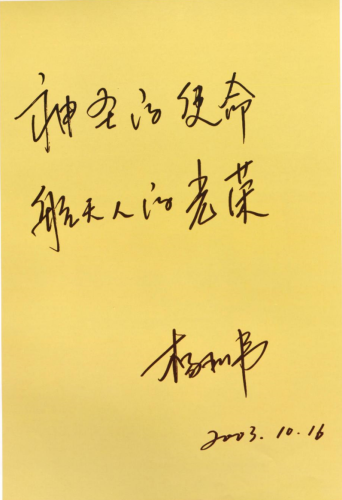 神圣的使命
航天人的光荣
杨利伟
2003.10.16